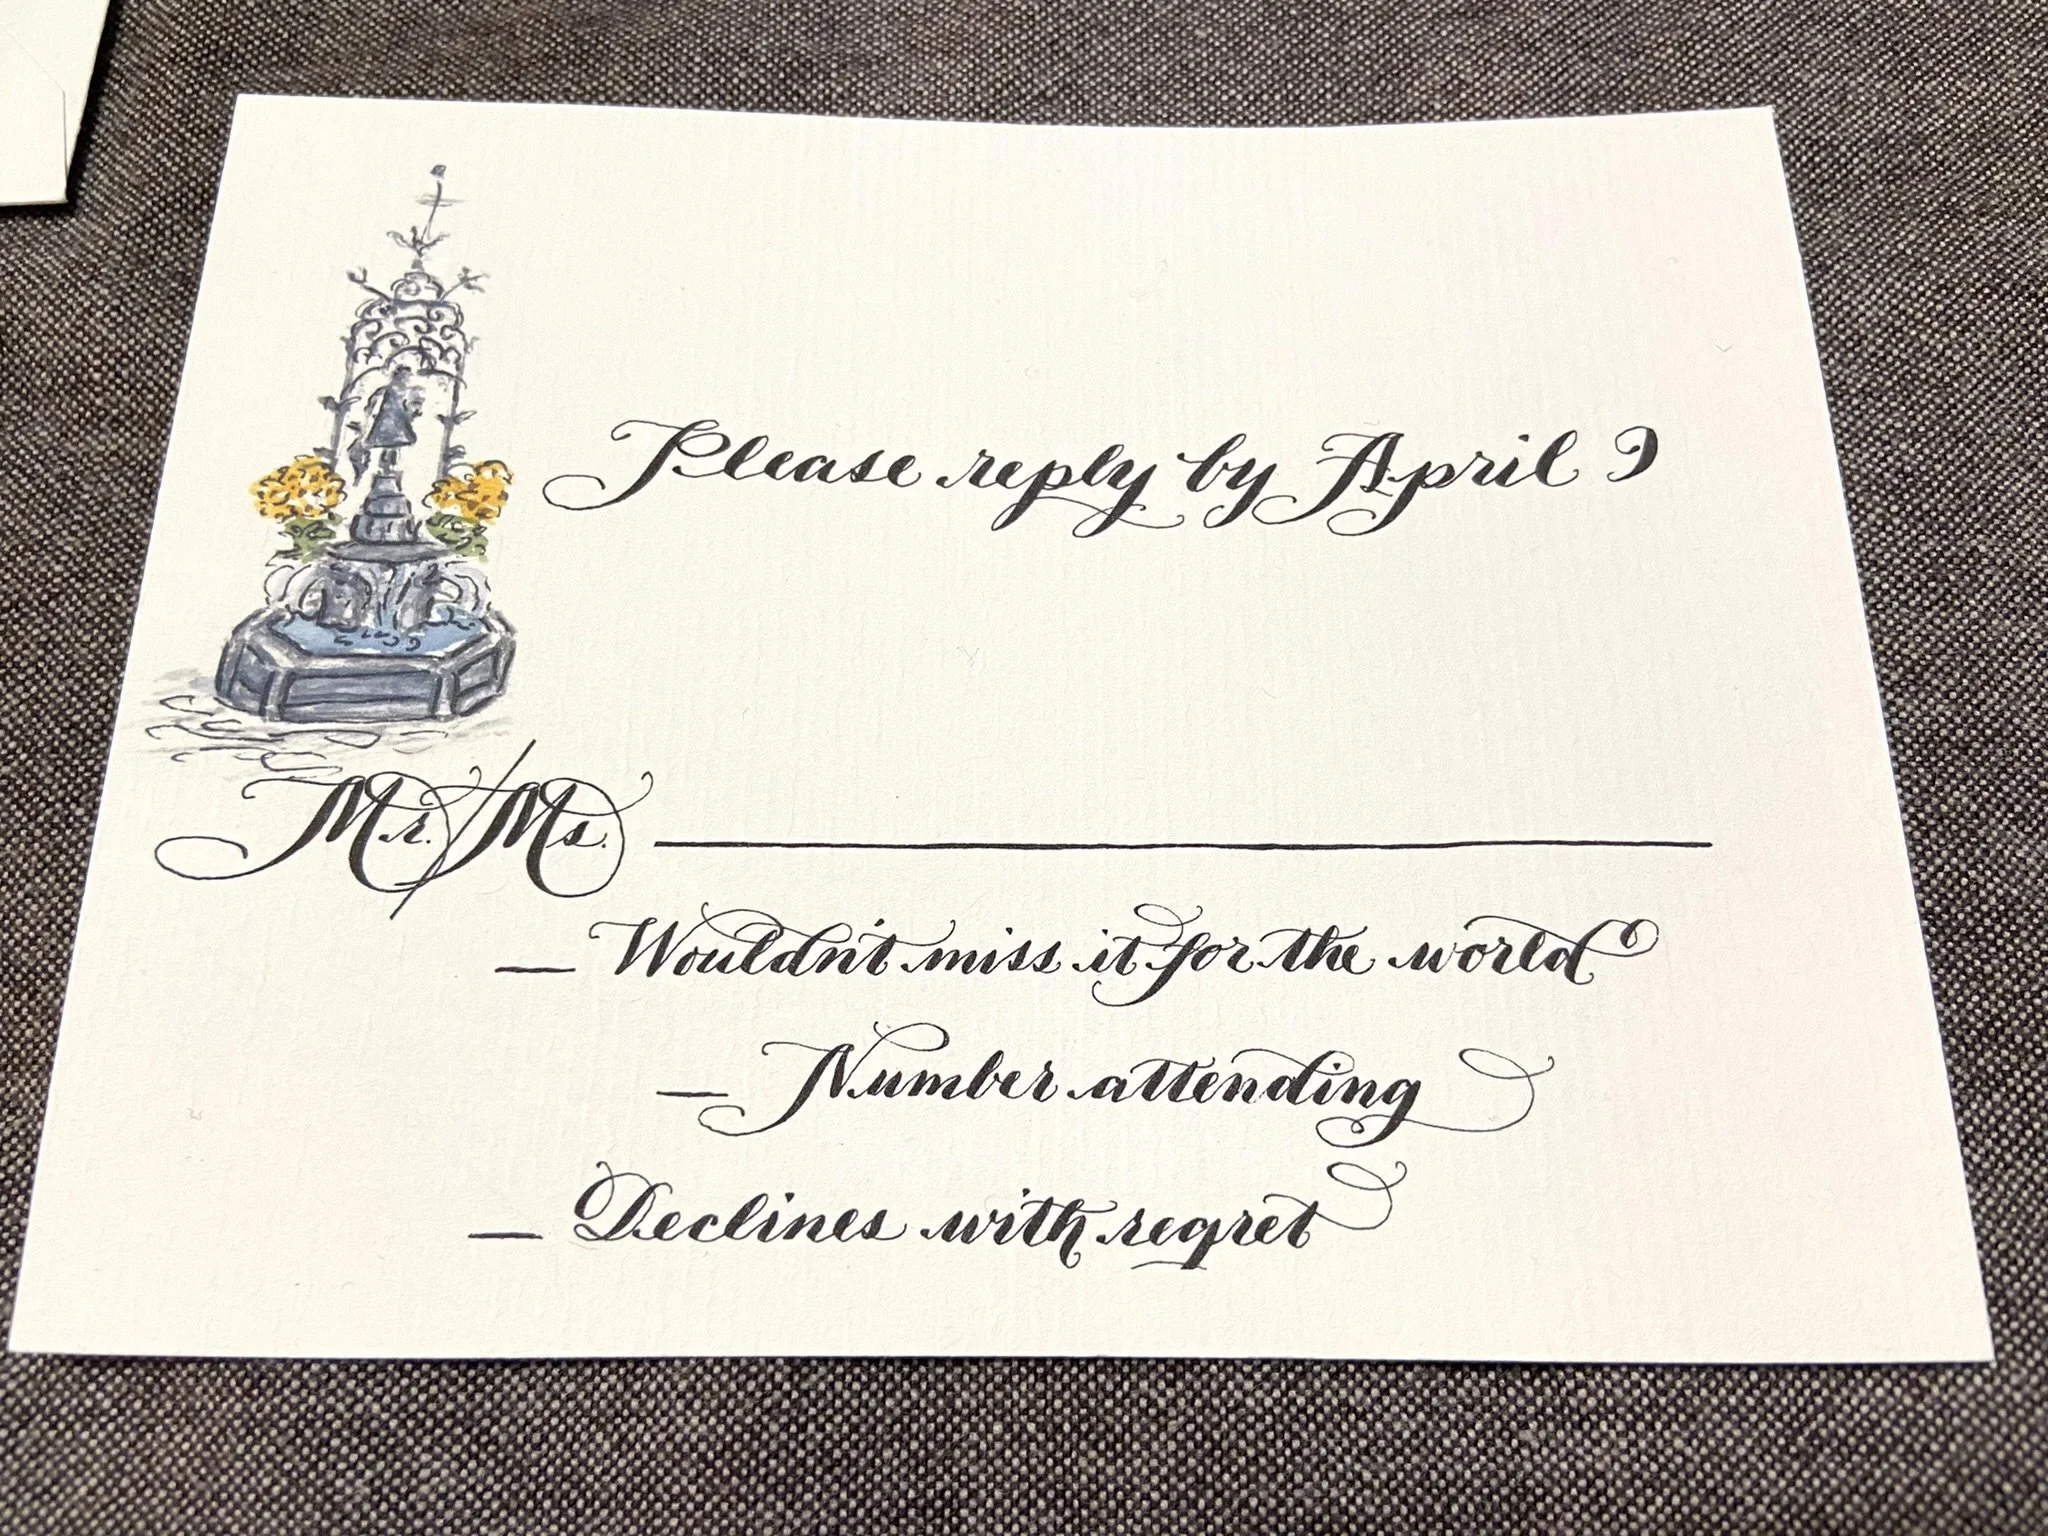 Please reply by April 9
Mr./Ms.
Wouldn't miss it for the world
Number attending
Declines with regret